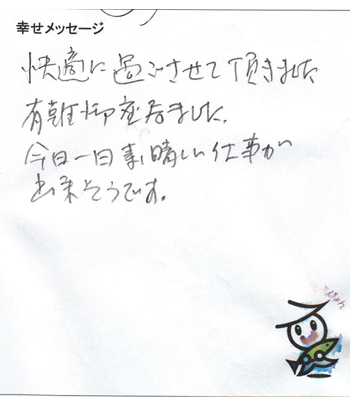 幸せメッセージ
快適に過ごさせて頂きました
有難御座居ました。
今日一日素晴しい仕事が
出来そうです。
ひょん